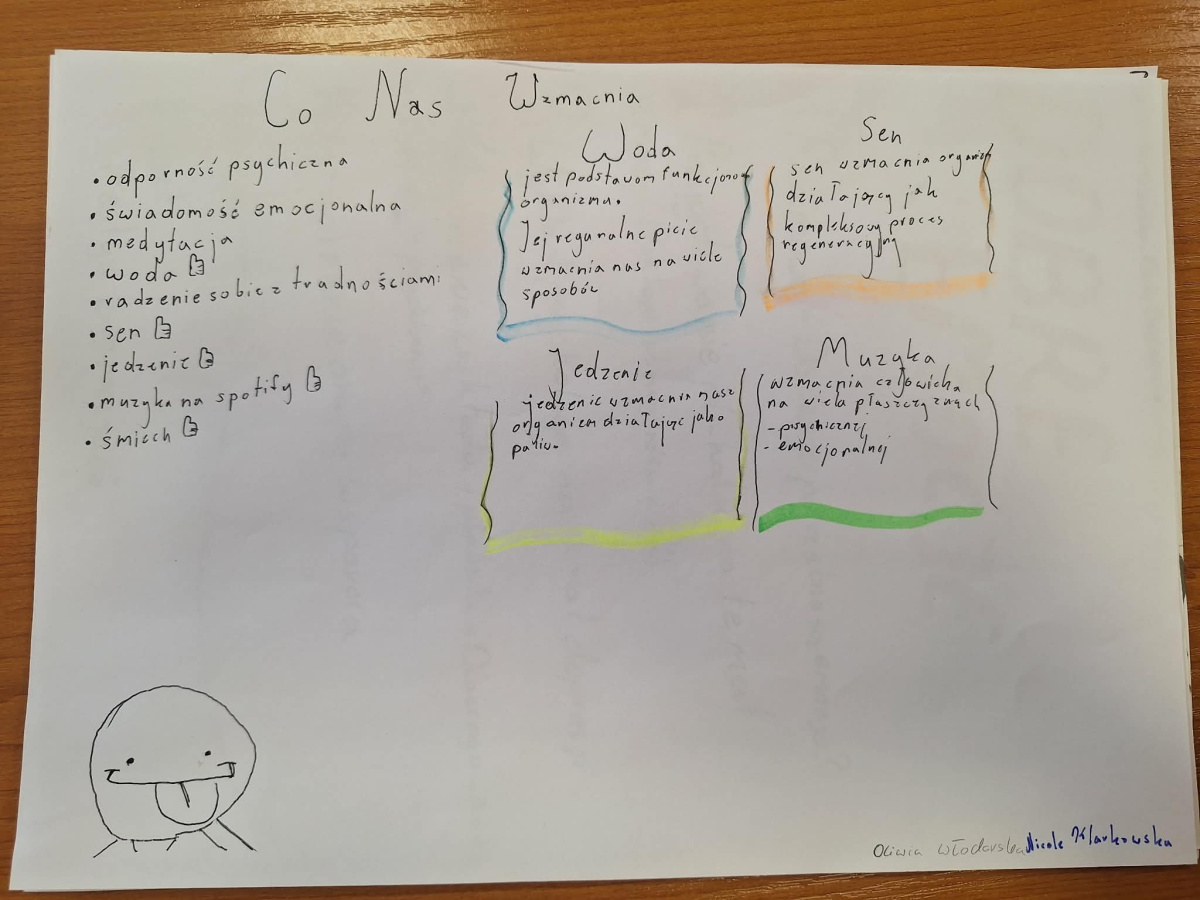 Co Nas Wzmacnia
• odporność psychiczna
• świadomość emocjonalna
• medytacja
• woda
• radzenie sobie z trudnościami
• sen
• jedzenie
• muzyka na spotify
• śmiech
Woda
jest podstawom funkcjonow
organizmu.
Jej regunalne picie
wzmacnia nas na wiele
sposobów
Sen
sen wzmacnia organizm
działający jak
kompleksowy proces
regeneracyjny
Jedzenie
jedzenie wzmacnia nasz
organizm działając jako
paliwo.
Muzyka
wzmacnia człowieka
na wielu płaszczyznach
- psychicznej
- emocjonalnej
Oliwia Włodarska Nicole